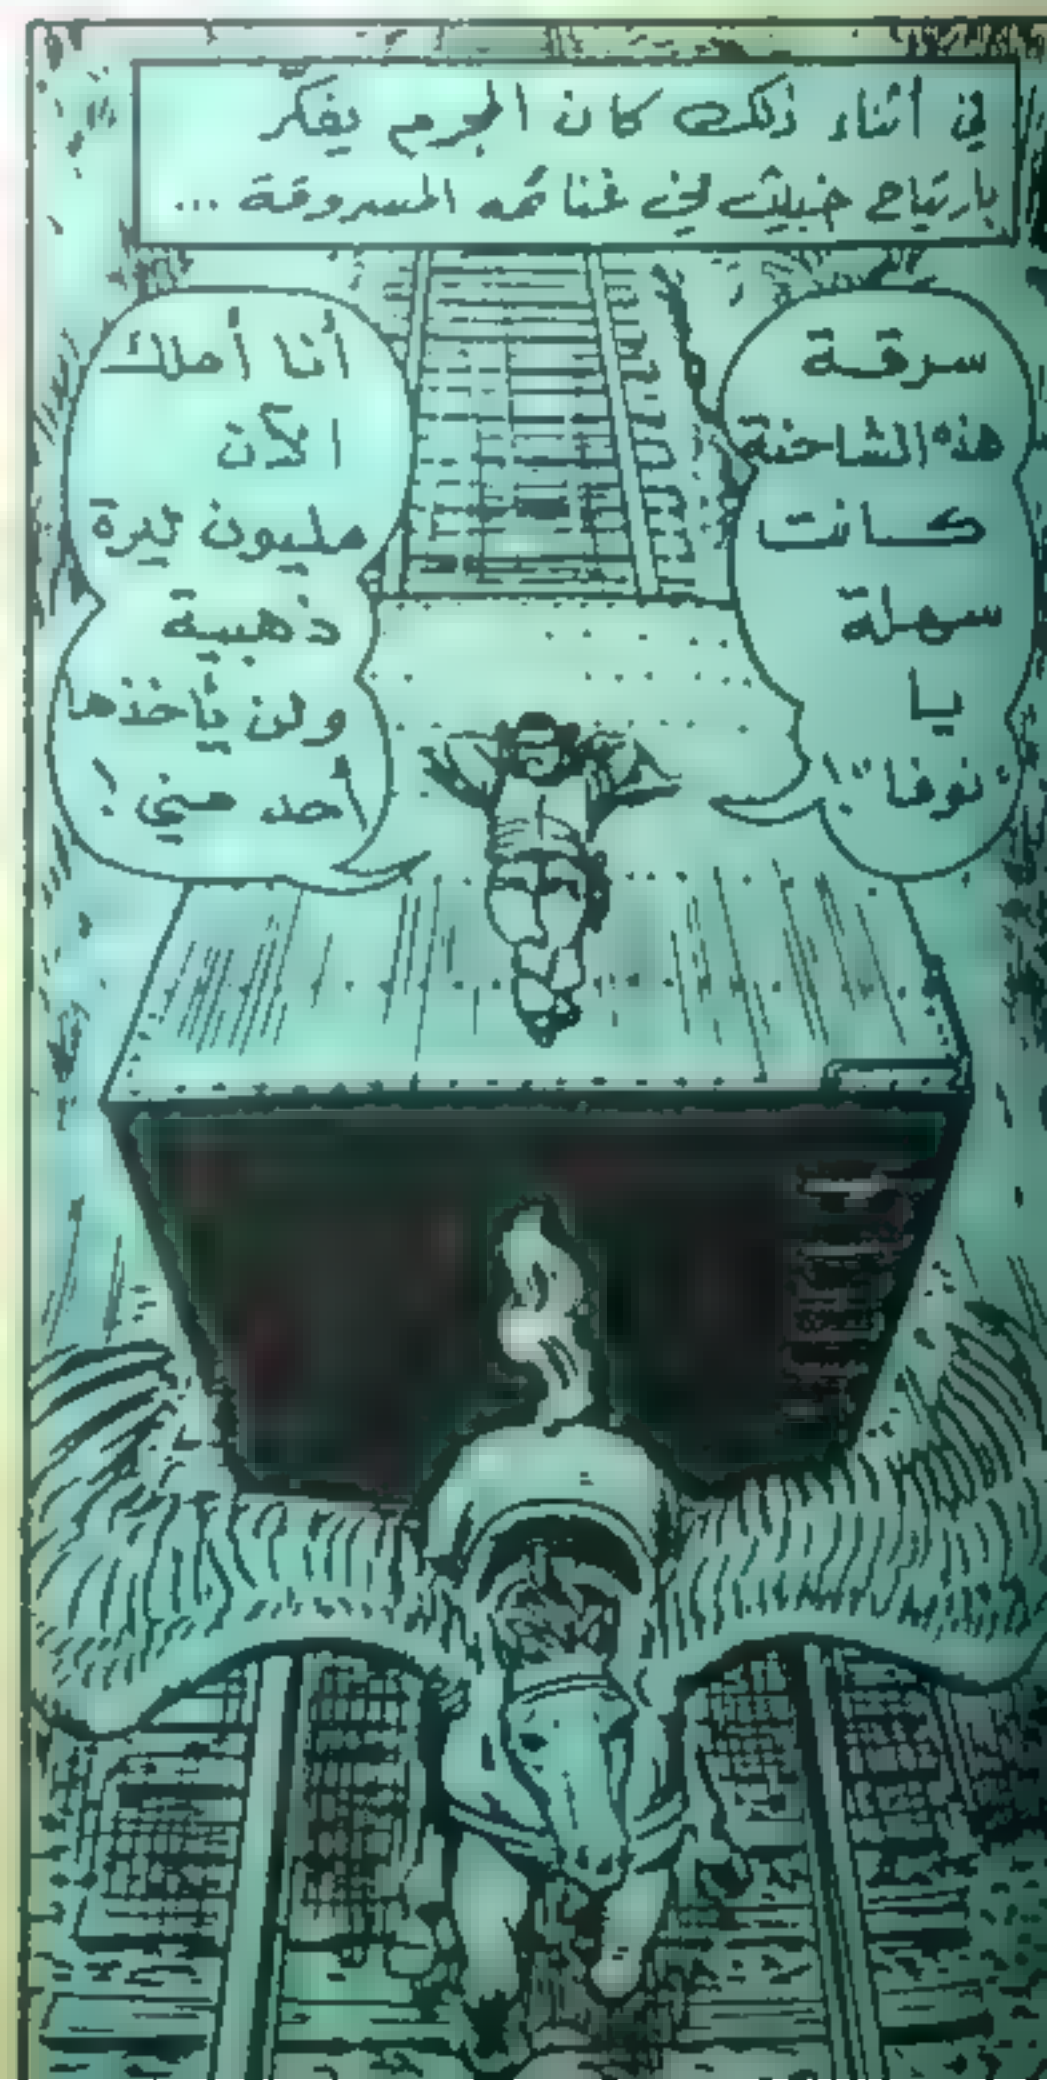 في أثناء ذلك كان المجرم يفكر
بارتياح خبيث في غنائمه المسروقة ...
سرقة
هذه الشاحنة
كانت
سهلة
يا
"نوفا"!
أنا أملك
الآن
مليون ليرة
ذهبية
ولن يأخذها
أحد مني!